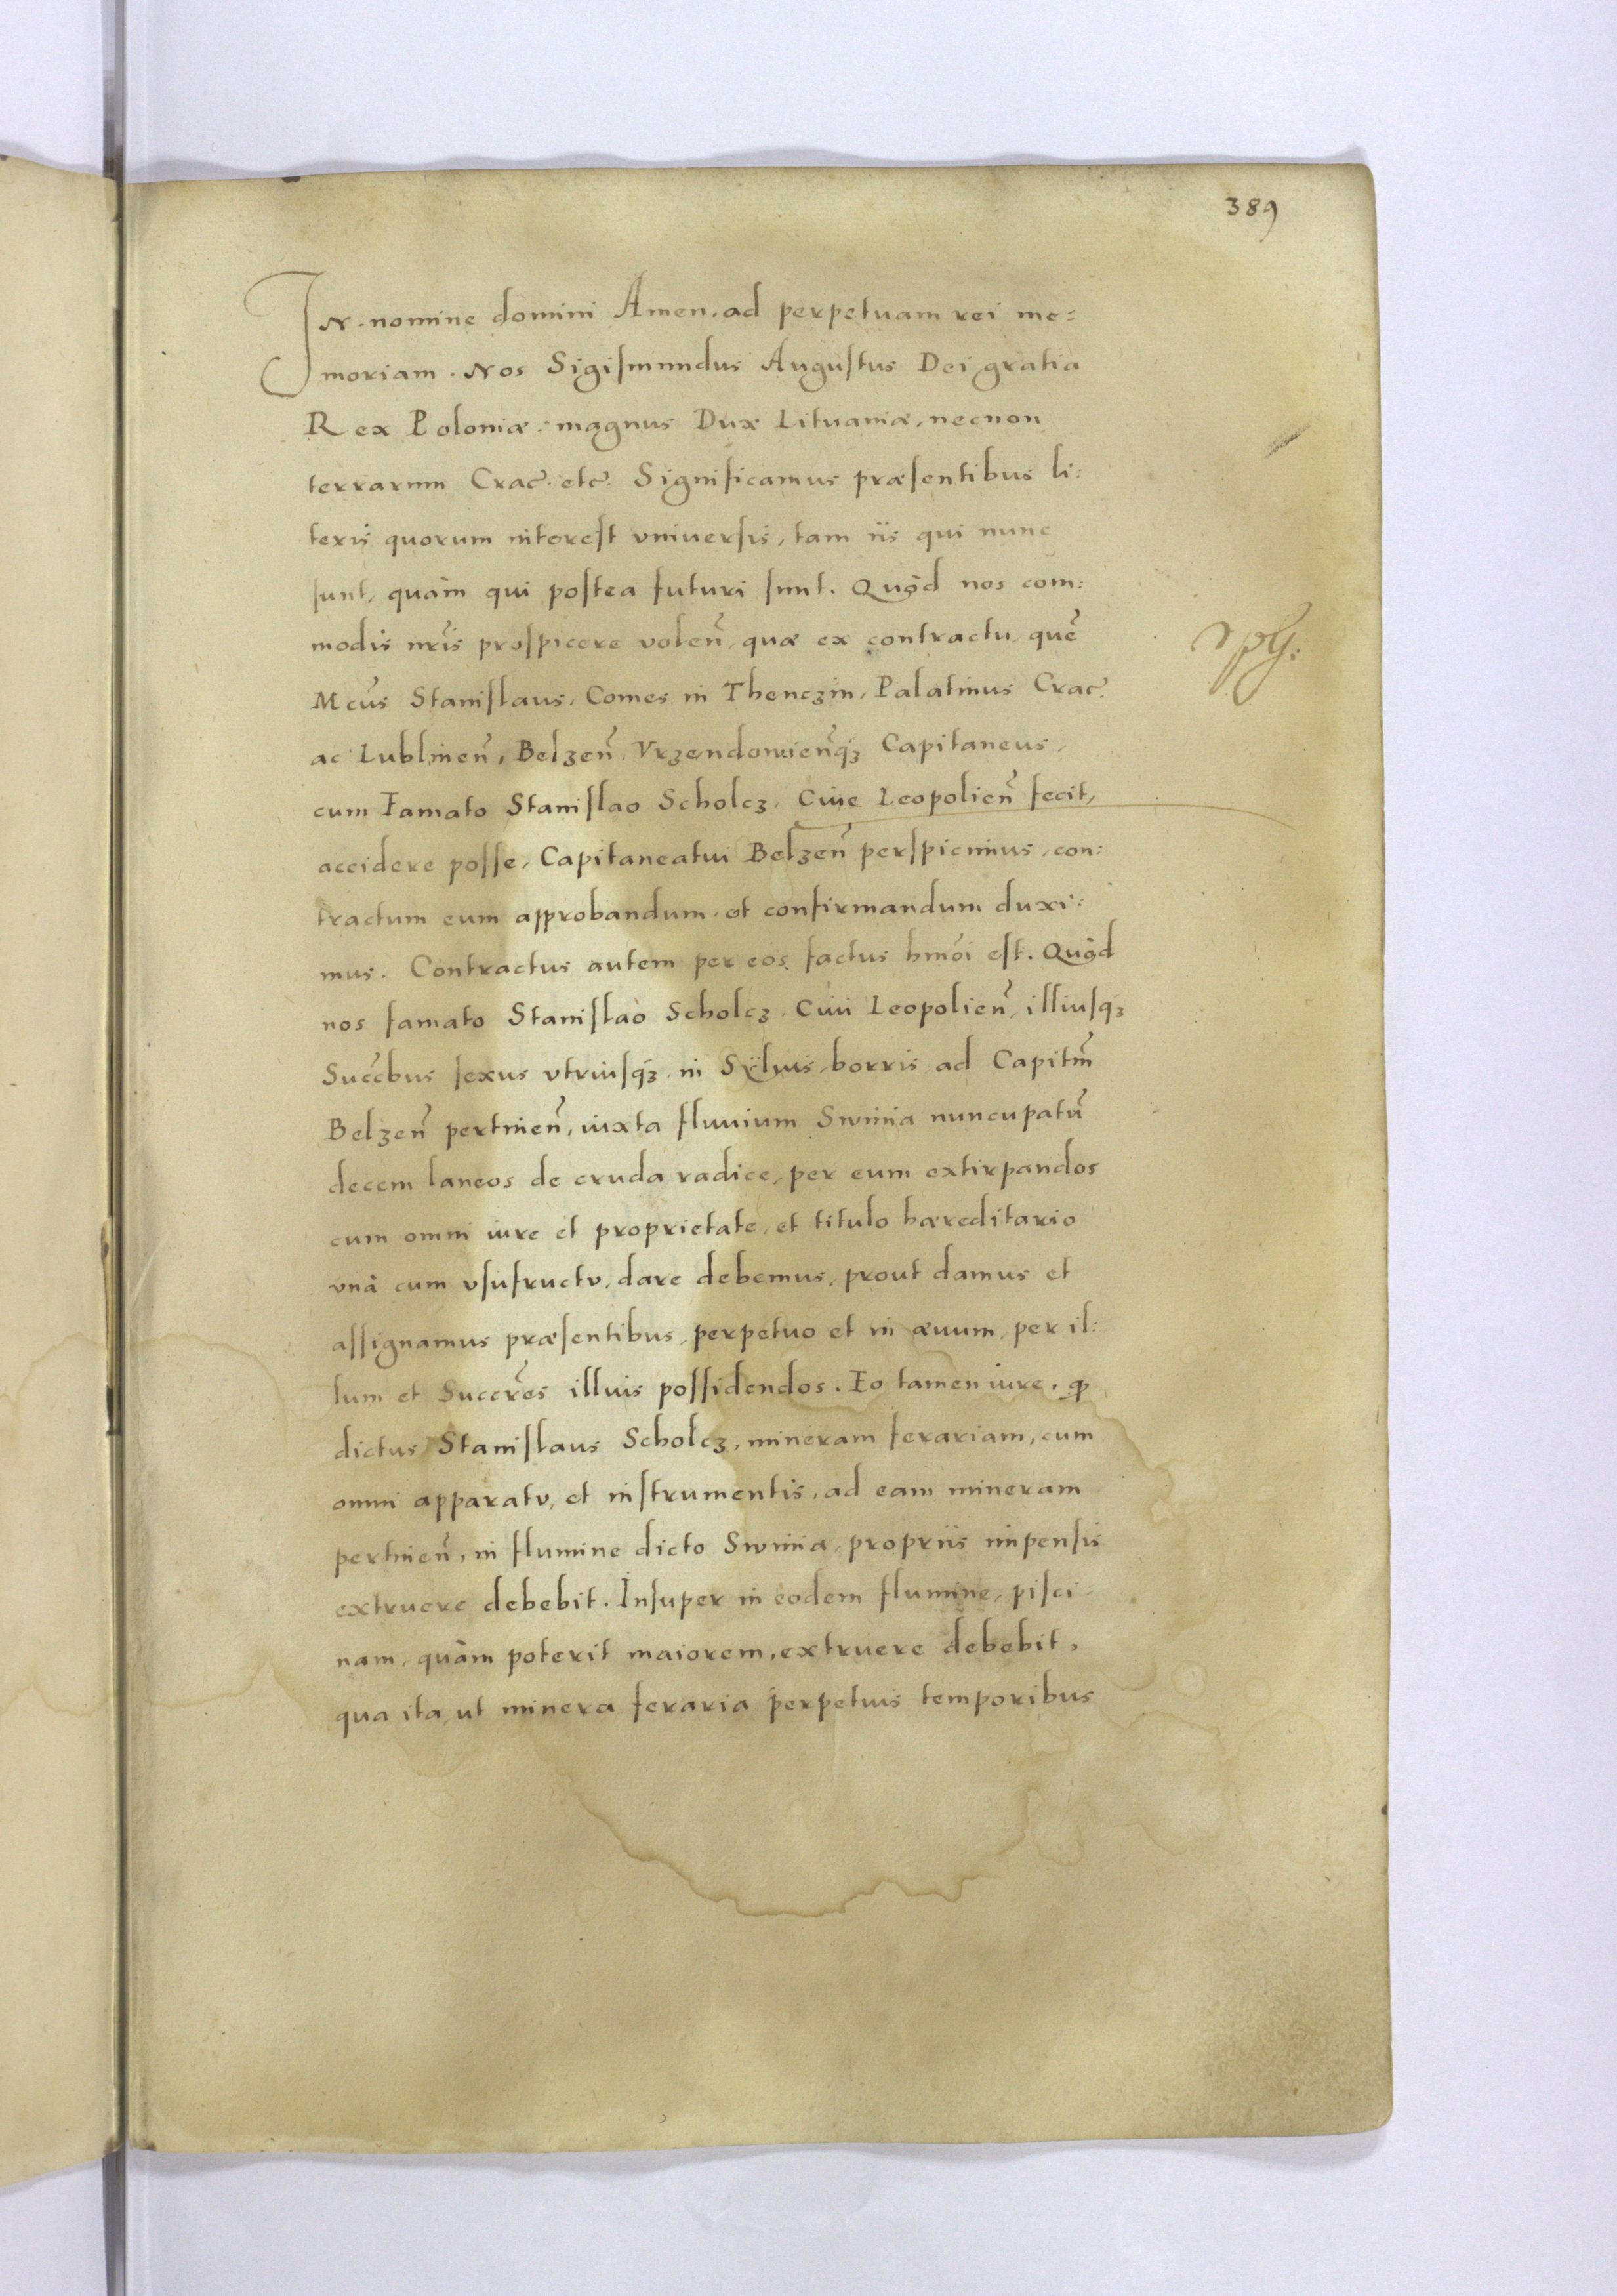 389
IN nomine domini Amen. ad perpetuam rei me=
moriam. Nos Sigismundus Augustus Dei gratia
Rex Poloniæ: magnus Dux Lituaniæ, necnon
terrarum Crac̃. etc̃. Significamus præsentibus li:
teris quorum interest vniuersis, tam iis qui nunc
sunt, quàm qui postea futuri sunt. Quòd nos com:
modis nr̃is prospicere volen̄, quæ ex contractu, quē
Mcūs Stanislaus, Comes in Thenczin, Palatinus Crac̃.
ac Lublinen̄, Belzen̄, Vrzendowien̄qꝫ Capitaneus,
cum Famato Stanislao Scholcz, Ciue Leopolien̄ fecit,
accidere posse, Capitaneatui Belzen̄ perspicimus, con:
tractum eum approbandum et confirmandum duxi:
mus. Contractus autem per eos factus hmōi est. Quòd
nos famato Stanislao Scholcz, Ciui Leopolien̄, illiusqꝫ
Succ̃bus sexus vtriusqꝫ, in Sÿluis, borris, ad Capitm̃
Belzen̄ pertinen̄, iuxta fluuium Swinia nuncupatū
decem laneos de cruda radice, per eum extirpandos
cum omni iure et proprietate, et titulo hæreditario
vnà cum vsufructv, dare debemus, prout damus et
assignamus præsentibus, perpetuo et in æuum, per il:
lum et Succr̃es illius possidendos. Eo tamen iure, ꝙ
dictus Stanislaus Scholcz, mineram ferariam, cum
omni apparatv, et instrumentis, ad eam mineram
pertinen̄, in flumine dicto Swinia, propriis impensis
extruere debebit. Insuper in eodem flumine, pisci-
nam, quàm poterit maiorem, extruere debebit,
qua ita, ut minera feraria perpetuis temporibus